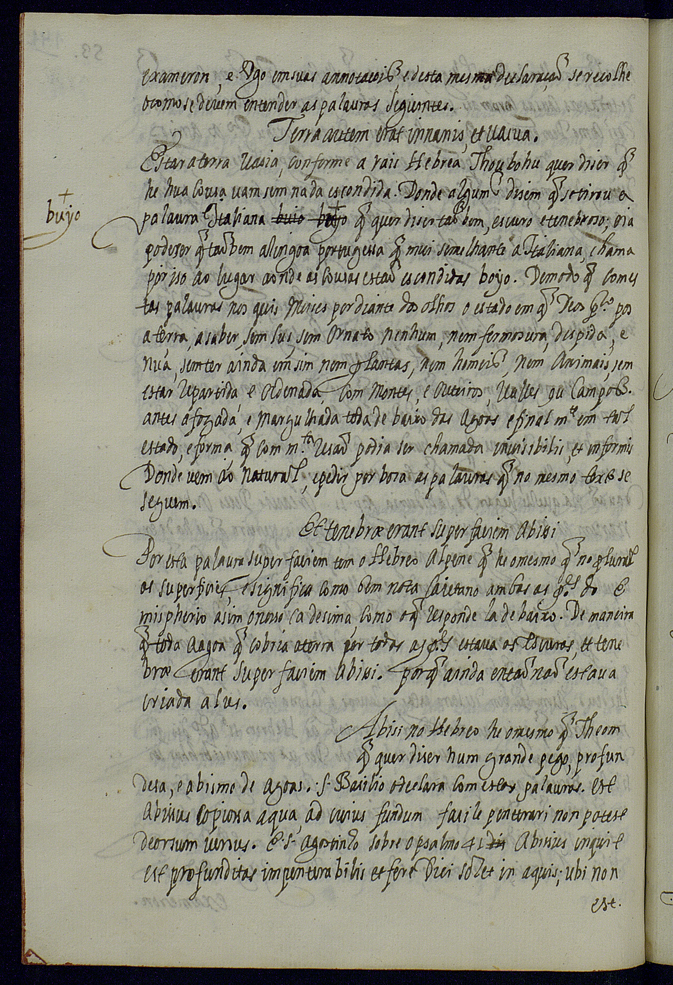 exameron, e Ugo em suas annotacois e desta mesma declaraçaõ se recolhe
o como se devem entender as palauras seguintes.
Terra autem erat innanis, et uacua.
Estar a terra Uasia, conforme a rais Hebrea Thoubohu quer diser q̃
he hua cousa uam sem nada escondida. Donde algums disem q̃ se tirou a
buyo
palaura Italiana buio boyo q̃ quer diser taõ bem, escuro e tenebroso: ora
podeser q̃ taõ bem a lingoa portugessa q̃ mui semelhante a Italiana, chama
por iso ao lugar aonde as cousas estaõ escondidas boyo. Demodo q̃ com es
tas palauras nos quis Moises por diante dos olhos o estado em q̃ Deos pos
a terra, a saber sem lus sem ornato nenhum, nem fermosura, despida, e
nua, sem ter ainda em sin nem plantas, nem homeis, nem Animais, sem
estar repartida e ordenada com Montes, e outeiros, Ualles ou Campos.
antes afogada, e Margulhada toda de baixo das Agoas e final mte em tal
estado, e forma q̃ com mta resaõ podia ser chamada inuisibilis, et informis
Donde vem ao natural, e pedir por boca as palauras q̃ no mesmo texto se
seguem.
Et tenebræ erant super faciem Abisi
Por esta palaura super faciem tem o Hebreo Alpene q̃ he o mesmo q̃ no plural
as superficies, e significa como bem nota Caietano ambas as ptes do E
mispherio asim o nosso ca de sima como o q̃ responde la de baixo. De maneira
q̃ toda a agoa q̃ cobria a terra por todas as ptes estaua as escuras et tene
bræ erant super faciem Abisi. porq̃ ainda entaõ naõ estaua
criada a lus.
Abisi no Hebreo he o mesmo q̃ Theom
q̃ quer diser hum grande pego, profun
desa, e abismo de Agoas. S. Basilio o declara com estas palauras. est
Abisus copiosa aqua, ad cuius fundum facile penetrari non potest
deorsum uersus. E S. Agostinho sobre o psalmo 41 Abisus inquit
est profunditas impenetrabilis et fere Dici solet in aquis; ubi non
est.